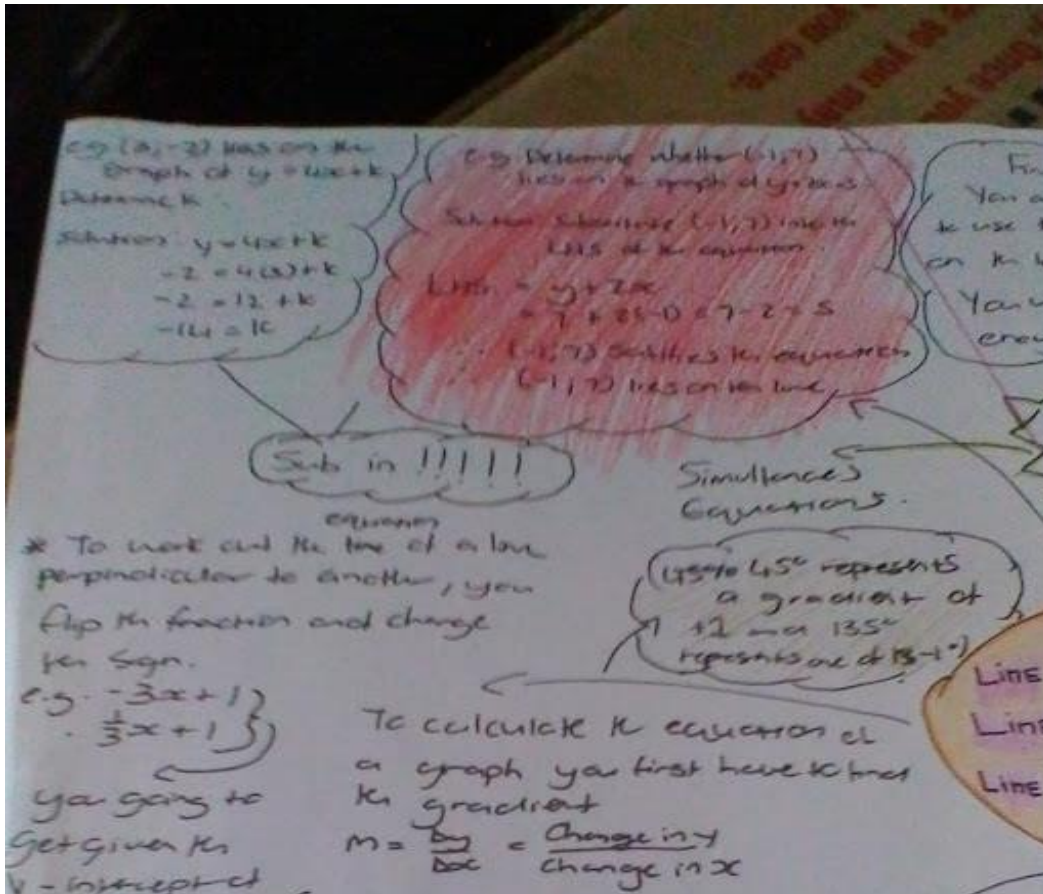 e.g (3, -2) lies on the
graph of y = 4x + k
Determine k.
Solution: y = 4x + k
-2 = 4(3) + k
-2 = 12 + k
-14 = k
e.g. Determine whether (-1, 7)
lies on the graph of
Solution: Substitute (-1, 7) into the
LHS of the equation.
LHS. = y + 2x
= 7 + 2(-1) = 7 - 2 = 5
(-1, 7) satisfies the equation
(-1, 7) lies on the line
You
to use
on the
You
Sub in !!!!!
Simultences
Equations.
equation
* To work out the line of a line
perpindicular to another, you
flip the fraction and change
the sign.
e.g. -3x + 1
1/3x + 1
you going to
get given the
y-intercept of
45° represents
a gradient of
+1 135°
represents one of
To calculate the equation of
a graph you first have to find
the gradient
m = Δy/Δx = Change in y/Change in x
Line
Line
Line